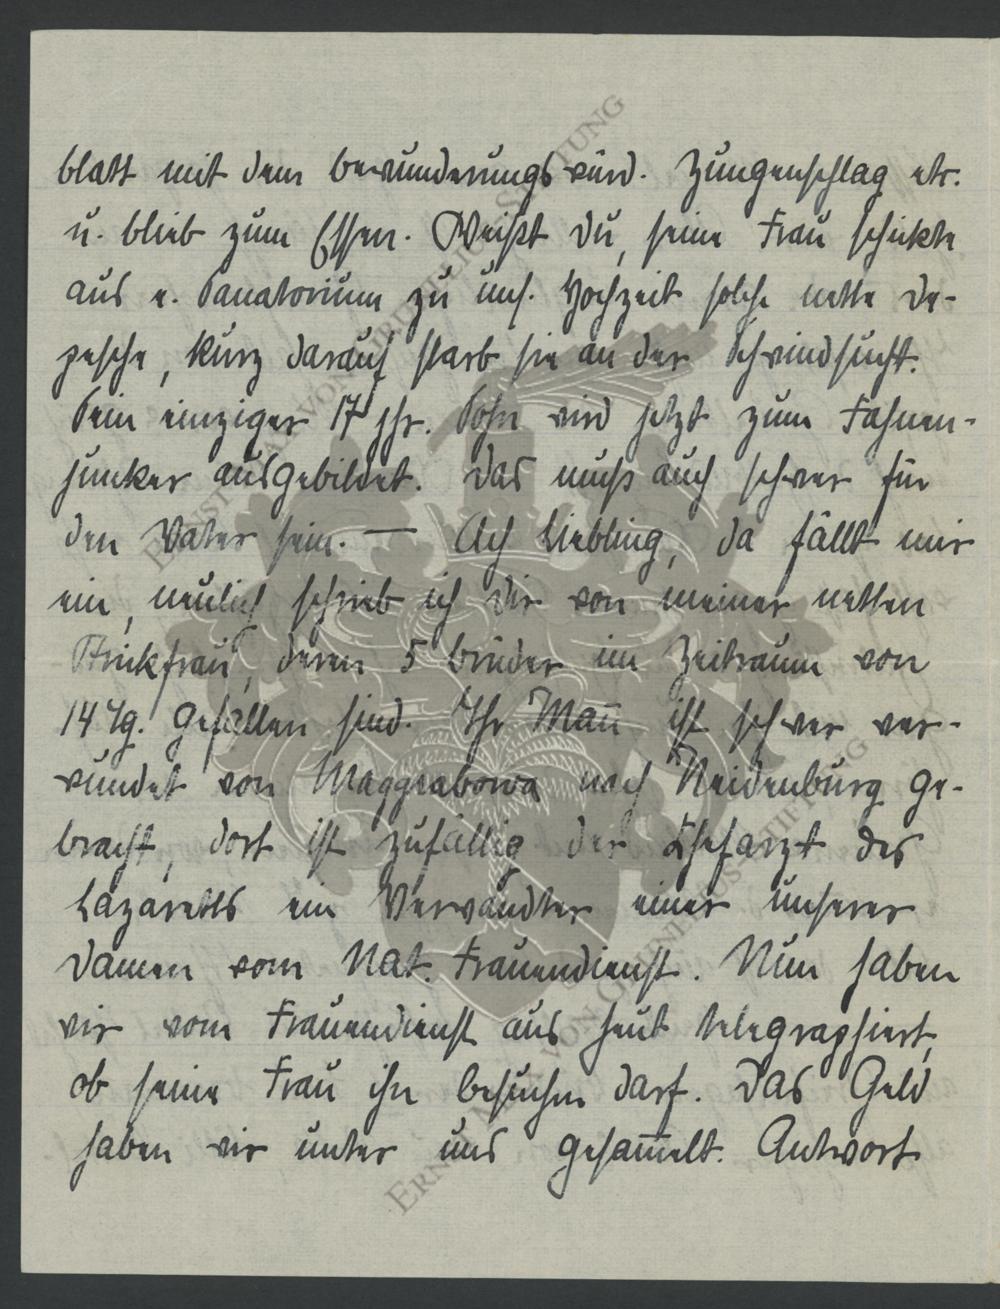 blatt mit dem bewunderungswürd. Zungenschlag etc.
u. blieb zum Essen. Weißt Du, seine Frau schickte
aus e. Sanatorium zu uns. Hochzeit solche nette De-
pesche, kurz darauf starb sie an der Schwindsucht.
Sein einziger 17 jhr. Sohn wird jetzt zum Fahnen-
junker ausgebildet. Das muß auch schwer für
den Vater sein. — Ach Liebling, da fällt mir
ein, neulich schrieb ich Dir von meiner netten
Strickfrau, deren 5 Brüder im Zeitraum von
14 Tg. gefallen sind. Ihr Mañ ist schwer ver-
wundet von Marggrabowa nach Neidenburg ge-
bracht, dort ist zufällig der Chefarzt des
Lazaretts ein Verwandter einer unserer
Damen vom Nat. Frauendienst. Nun haben
wir vom Frauendienst aus heut telegraphiert,
ob seine Frau ihn besuchen darf. Das Geld
haben wir unter uns gesam̄elt. Antwort
ERNST UND MIA VON OERTNEUS-STIFTUNG